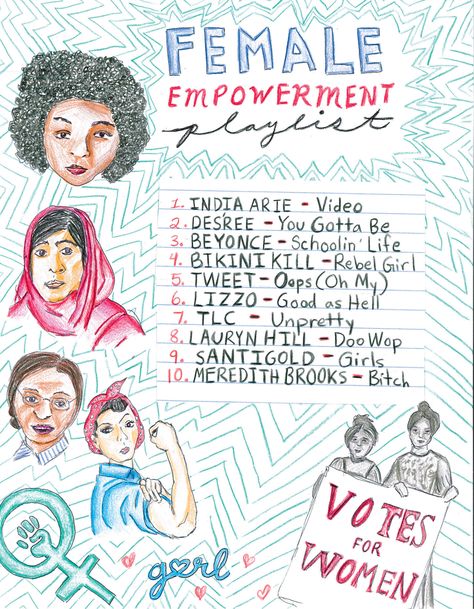 FEMALE
EMPOWERMENT
playlist
1. INDIA ARIE - Video
2. DESREE - You Gotta Be
3. BEYONCE - Schoolin' Life
4. BIKINI KILL - Rebel Girl
5. TWEET - Oops (Oh My)
6. LIZZO - Good as Hell
7. TLC - Unpretty
8. LAURYN HILL - Doo Wop
9. SANTIGOLD - Girls
10. MEREDITH BROOKS - Bitch
VOTES
FOR
WOMEN
gurl